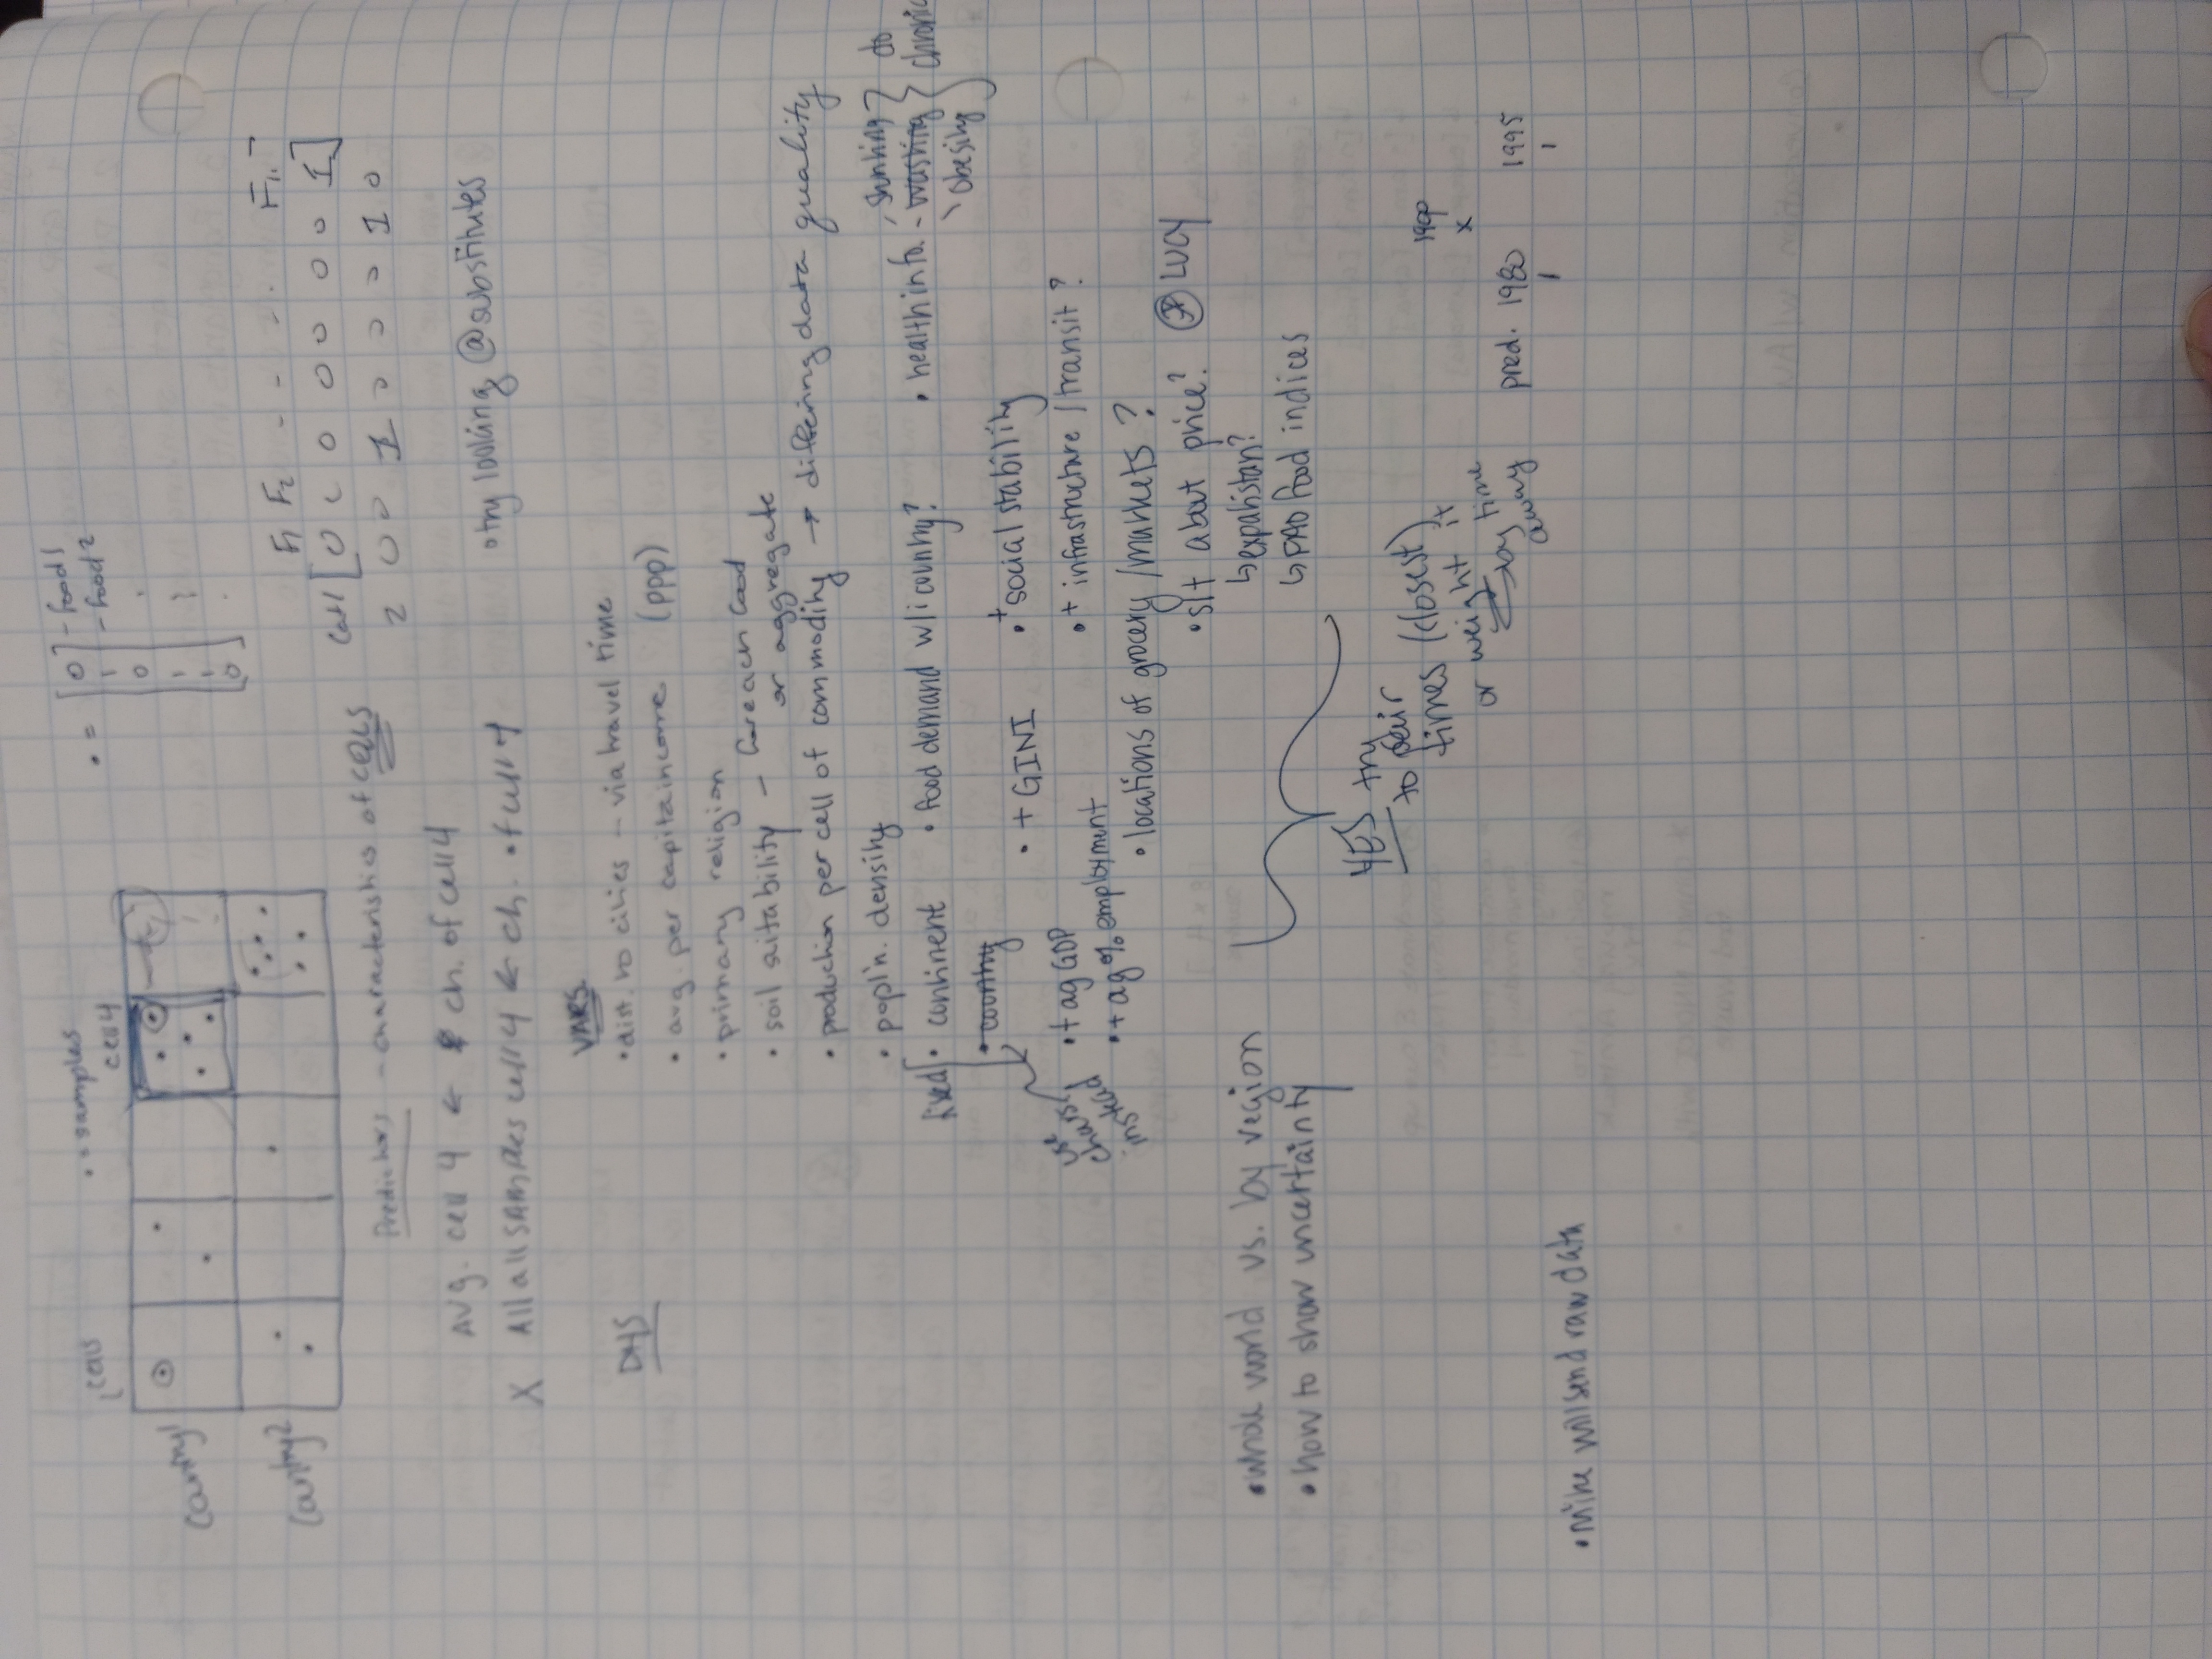 cells
• = samples
cell 4
Country 1
Country 2
• = [0 1 0 1 1 0]
- food 1
- food 2
F1 F2 - - - . F
Cell 1 [0 0 0 0 0 0 1]
2 0 0 1 0 0 0 1 0
Predictors - characteristics of CELLS
Avg. cell 4 ← ch. of cell 4
X All all samples cell 4 ← ch. of cell 4
• try looking @ substitutes
DHS
VARS.
• dist. to cities - via travel time
• avg. per capita income (PPP)
• primary religion
• soil suitability - for each food
or aggregate
• production per cell of commodity → differing data quality
• popl'n. density
fixed
• continent
• country
use
chars.
instead
• food demand w/i country?
• health info. - stunting
- wasting
obesity
do
chronic
• + GINI
• + social stability
• + ag GDP
• + infrastructure / transit?
• + ag % employment
• locations of grocery / markets?
• s/t about price? * LUCY
↳ expatistan?
↳ FAO food indices
• whole world vs. by region
• how to show uncertainty
YES try
to pair
times (closest)
or weight it
by time
away
1990
x
pred. 1980 1995
• Mike will send raw data